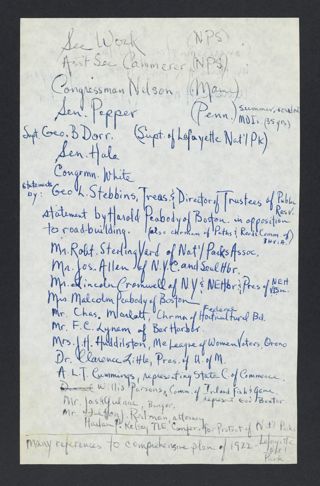 Sec Work (NPS)
Ass't Sec Cammerer (NPS)
Congressman Nelson (Maine)
Sen. Pepper (Penn.) summer resident
M.D.I. (35 yrs)
Supt. Geo. B. Dorr. (Supt of Lafayette Nat'l Pk)
Sen. Hale
Congrmn. White
statements
by: Geo. L. Stebbins, Treas & Director of Trustees of Public
Resv.
statement by Harold Peabody of Boston in opposition
to road building. (also chairman of Paths & Roads Comm. of
Mr. Robt. Sterling Yard of Nat'l Parks Assoc.
Mr. Jos. Allen of N.Y.C. and Seal Hbr.
Mr. Lincoln Cromwell of N.Y & NEHbr & Pres of NEH
Mrs. Malcolm Peabody of Boston
Mr. Chas. Marlatt, Chrmn of Federal Horticultural Bd.
Mr. F.C. Lynam of Bar Harbor.
Mrs. J.H. Huddilston, Me League of Women Voters, Orono
Dr. Clarence Little, Pres. of U. of M.
A L T Cummings, representing State C. of Commerce
Willis Parsons, Comm. of Inland Fish & Game
represent Gov Baxter
Mr. Bangor.
Mr. attorney
Harlan P. Kelsey Nat'l Parks
Many references to comprehensive plan of 1922 Lafayette
Nat'l
Park